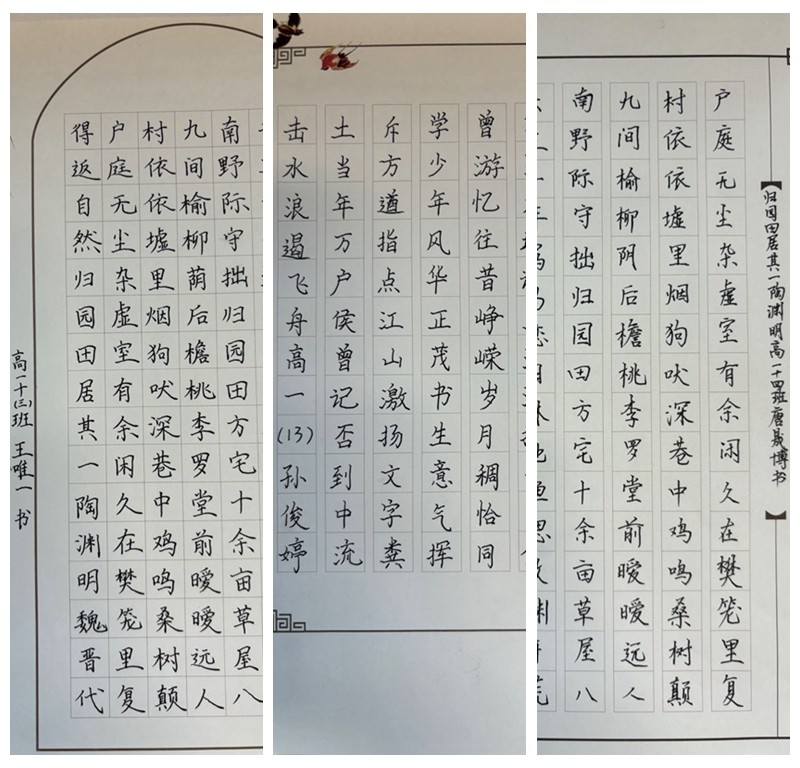 南野际守拙归园田方宅十余亩草屋八
九间榆柳荫后檐桃李罗堂前暧暧远人
村依依墟里烟狗吠深巷中鸡鸣桑树颠
户庭无尘杂虚室有余闲久在樊笼里复
得返自然归园田居其一陶渊明魏晋代
高一十(三)班 王唯一 书
曾游忆往昔峥嵘岁月稠恰同
学少年风华正茂书生意气挥
斥方遒指点江山激扬文字粪
土当年万户侯曾记否到中流
击水浪遏飞舟高一(13)孙俊婷
【归园田居其一陶渊明高一十四班唐晟博书】
户庭无尘杂虚室有余闲久在樊笼里复
村依依墟里烟狗吠深巷中鸡鸣桑树颠
九间榆柳阴后檐桃李罗堂前暧暧远人
南野际守拙归园田方宅十余亩草屋八